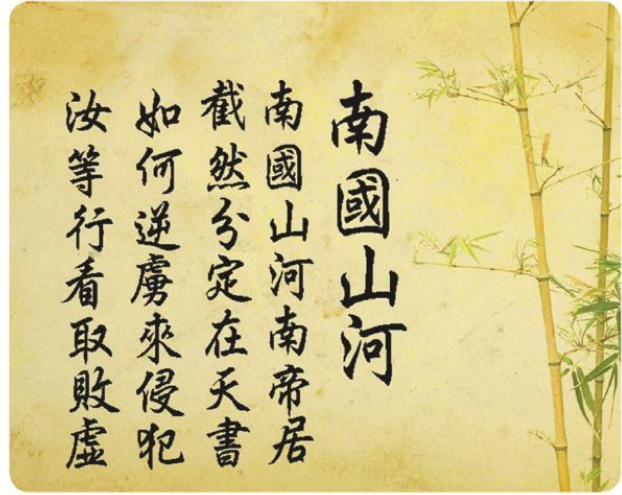 南國山河
南國山河南帝居
截然分定在天書
如何逆虜來侵犯
汝等行看取敗虛